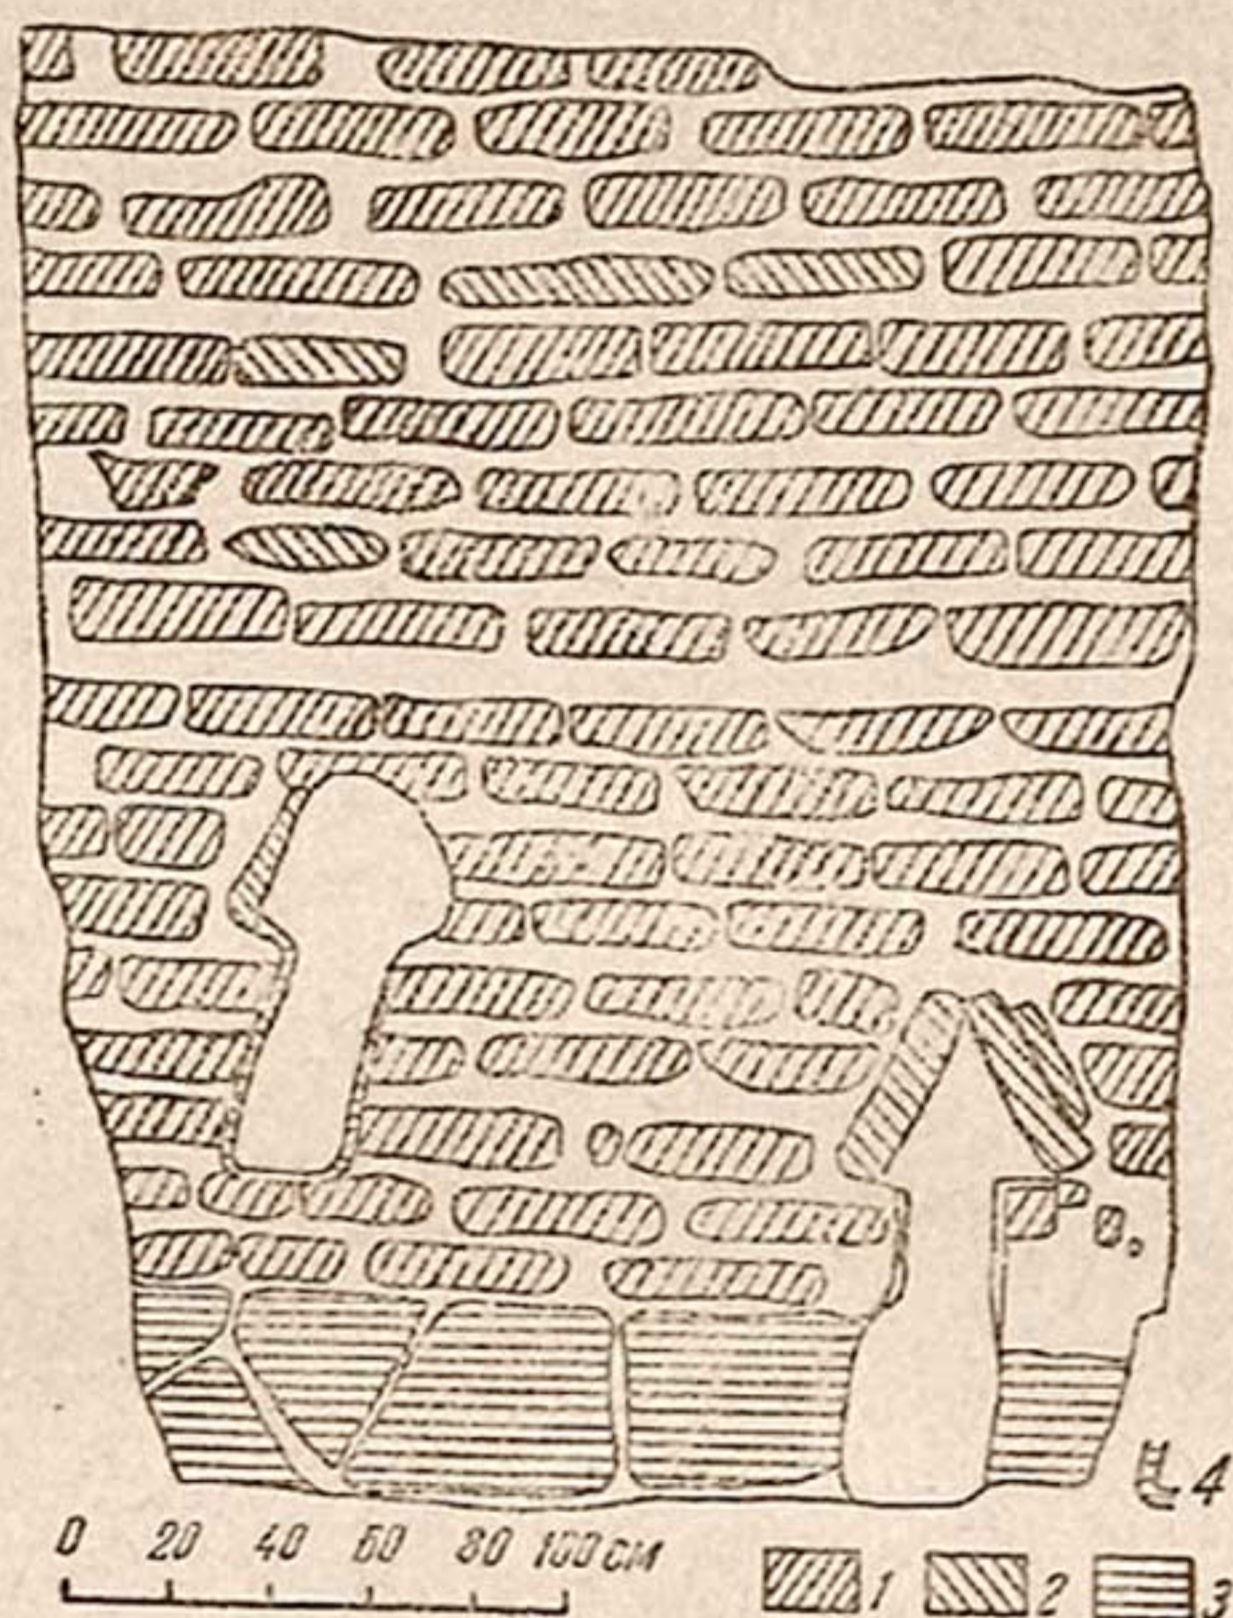 4
0 20 40 60 80 100 см
1 2 3